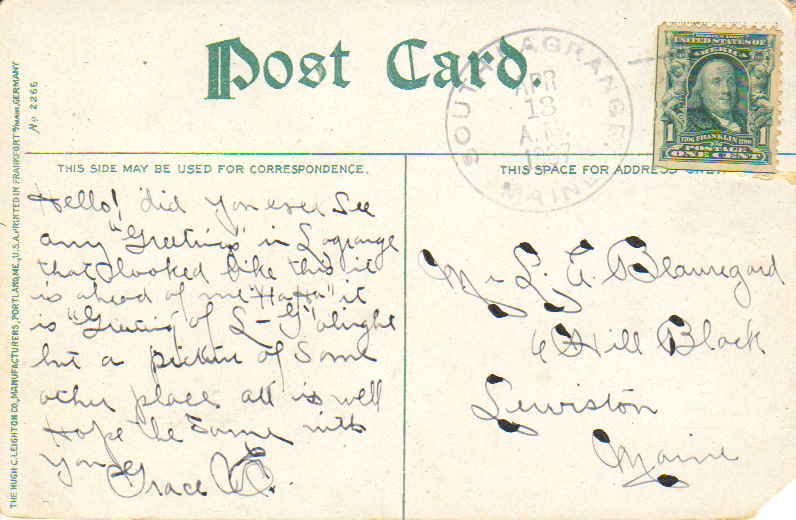 Post Card.
SOUTH LAGRANGE
APR
13
A.M.
1907
MAINE
UNITED STATES OF
AMERICA
1706 FRANKLIN 1790
1 1
POSTAGE
ONE CENT
No 2266
THE HUGH C. LEIGHTON CO., MANUFACTURERS, PORTLAND, ME., U.S.A. PRINTED IN FRANKFORT a/MAIN, GERMANY
THIS SIDE MAY BE USED FOR CORRESPONDENCE.
Hello! did you ever See
any "Greetings" in Lagrange
that looked like this it
is ahead of me "Ha Ha" it
is "Greeting of L-G" alright
but a picture of Some
other place all is well
Hope the Same with
you Grace E.
THIS SPACE FOR ADDRESS ONLY.
Mr L. A. Beauregard
6 Hill Block
Lewiston
Maine